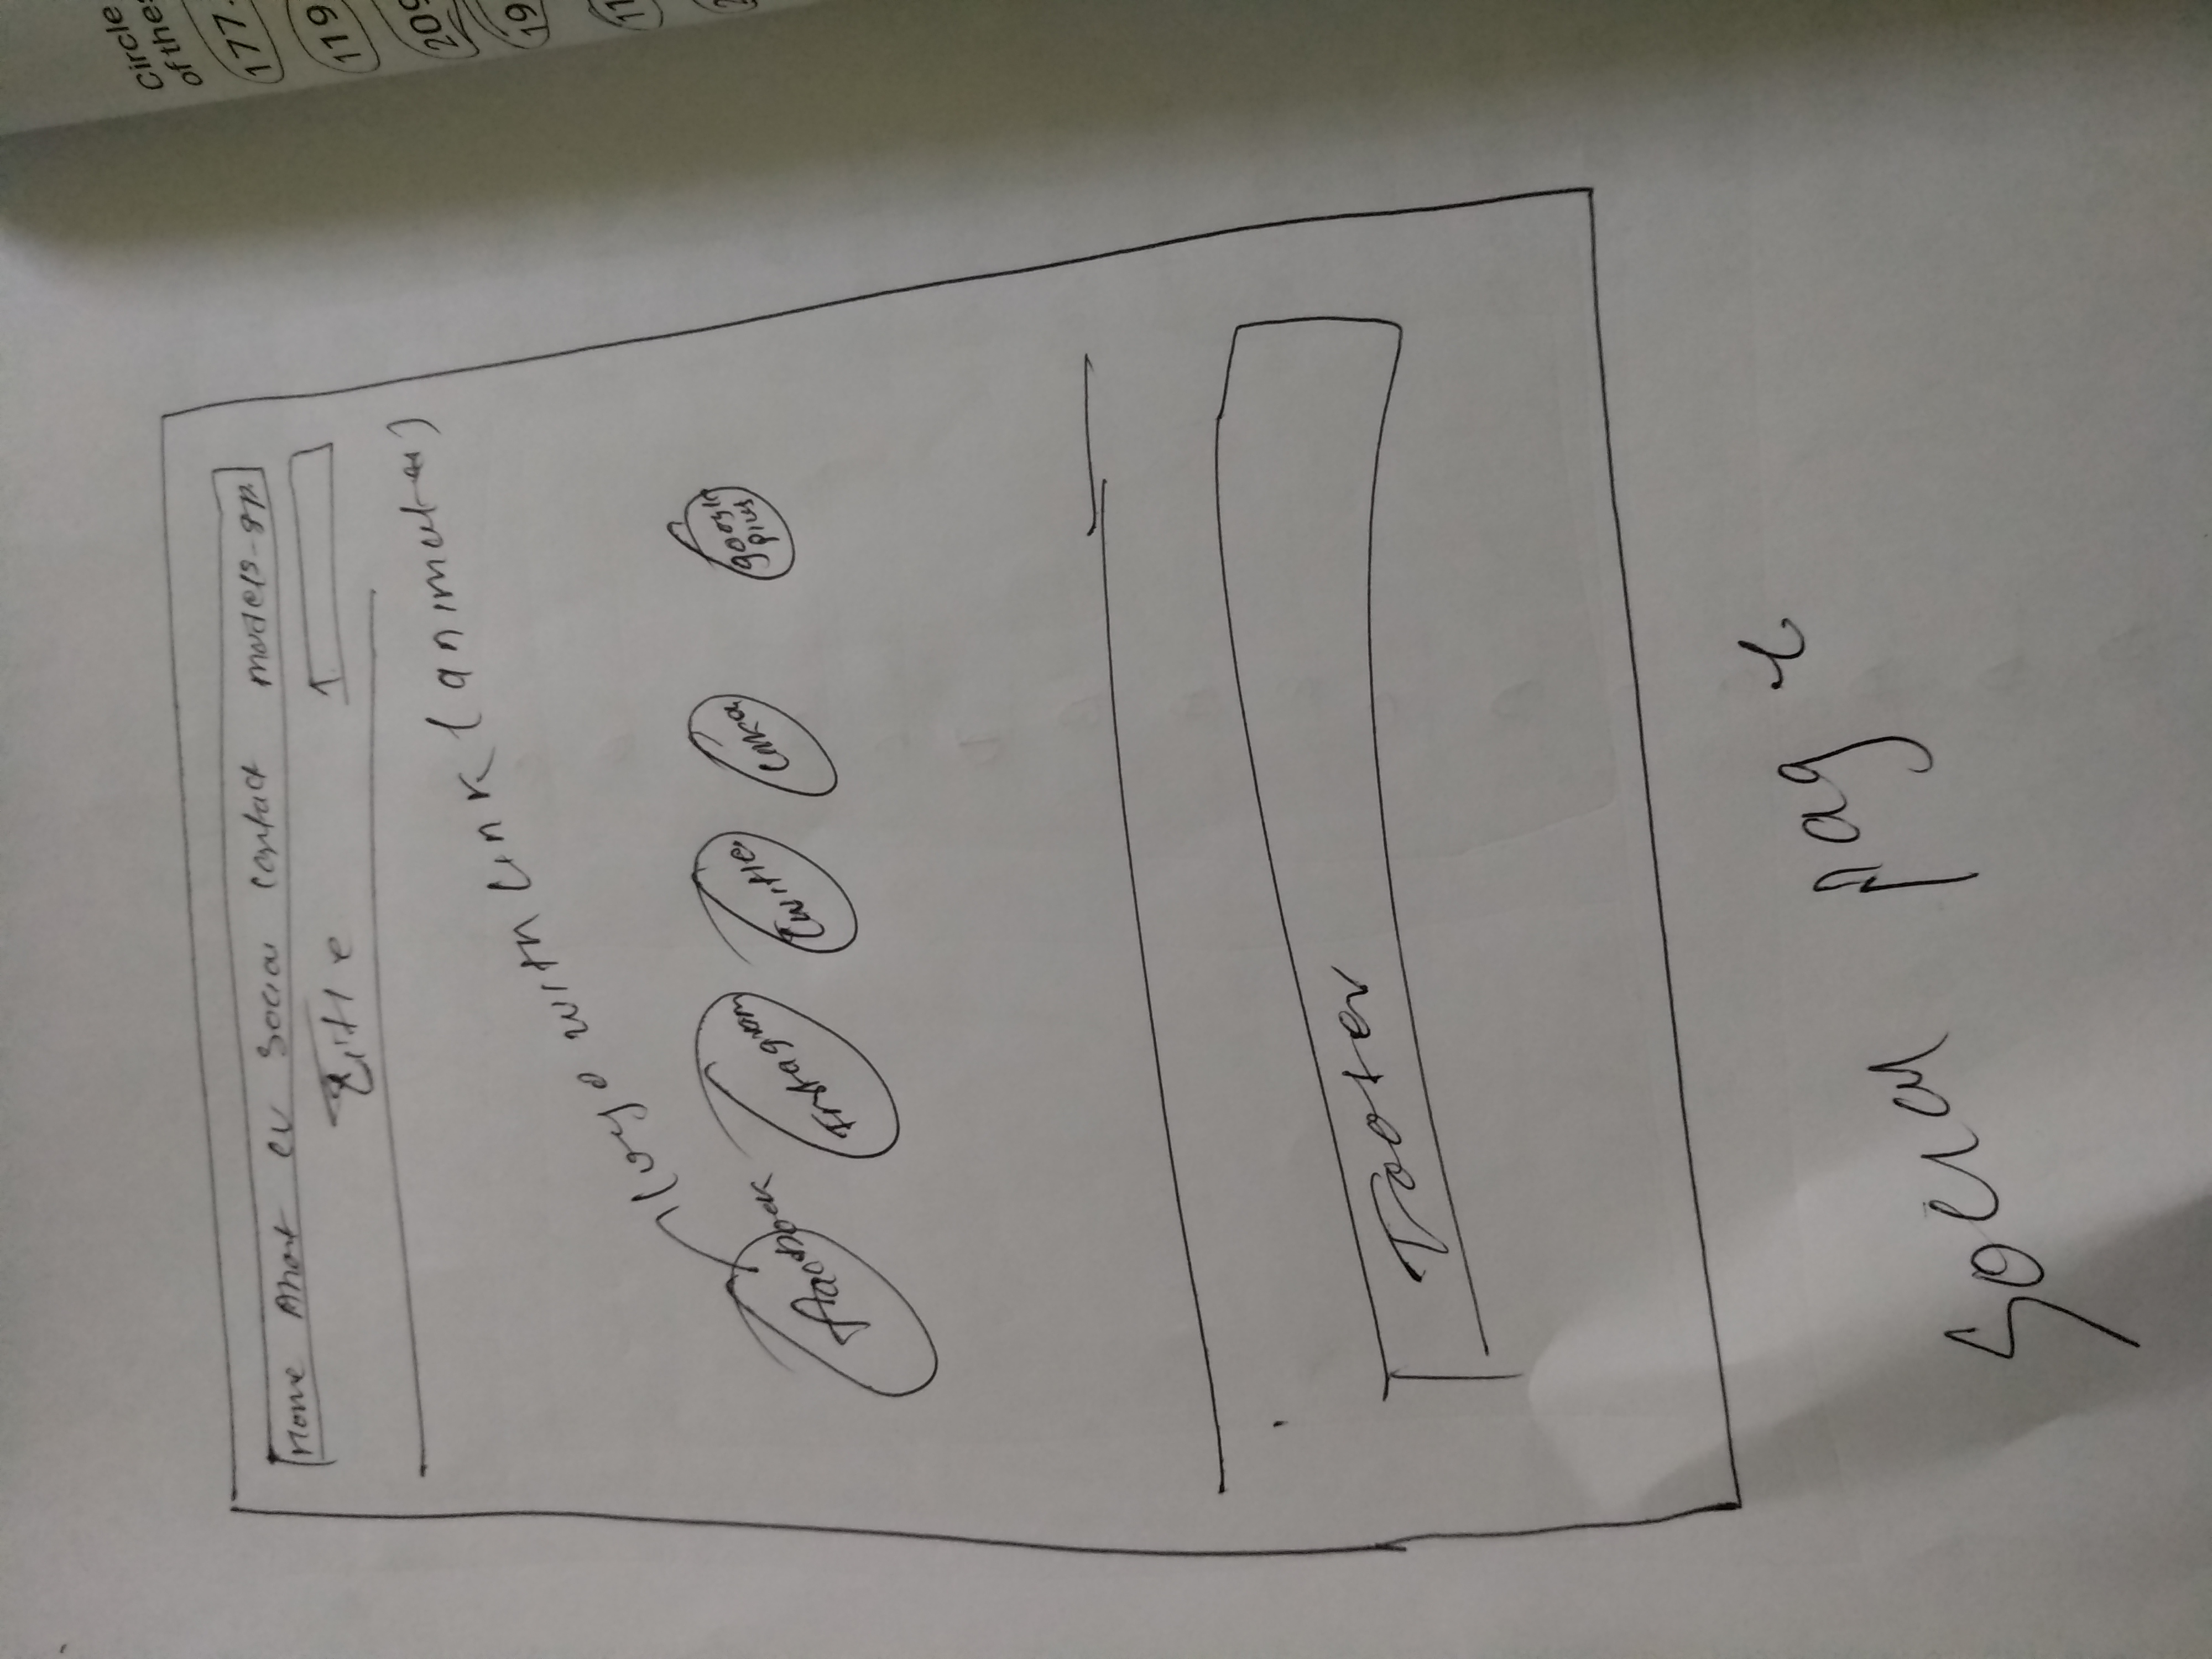 Home About CV Social Contact models-gp.
Title
logo with Link (animated)
facebook Instagram twitter google plus
Footer
Social page
Circle
of thes
177.
119
209
19
11
2